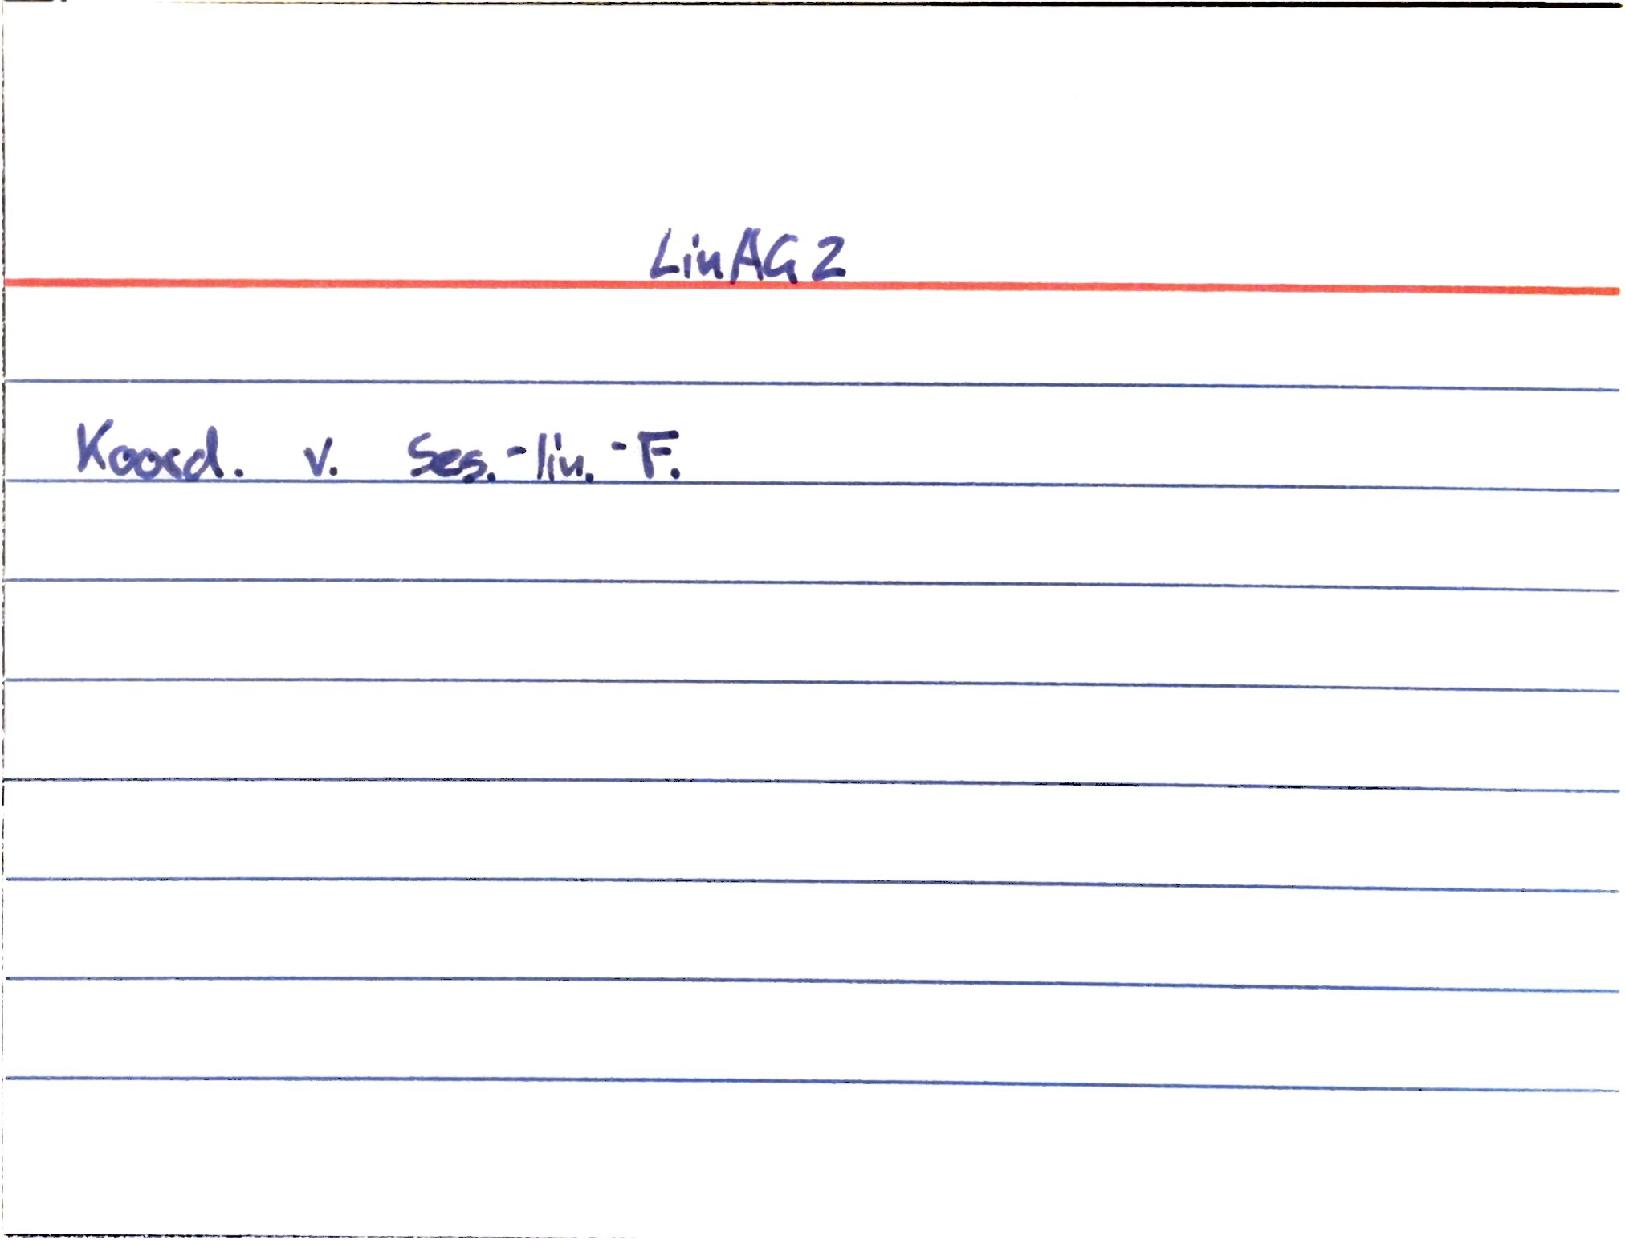 LinAG 2
Koord. v. Ses.-lin.-F.